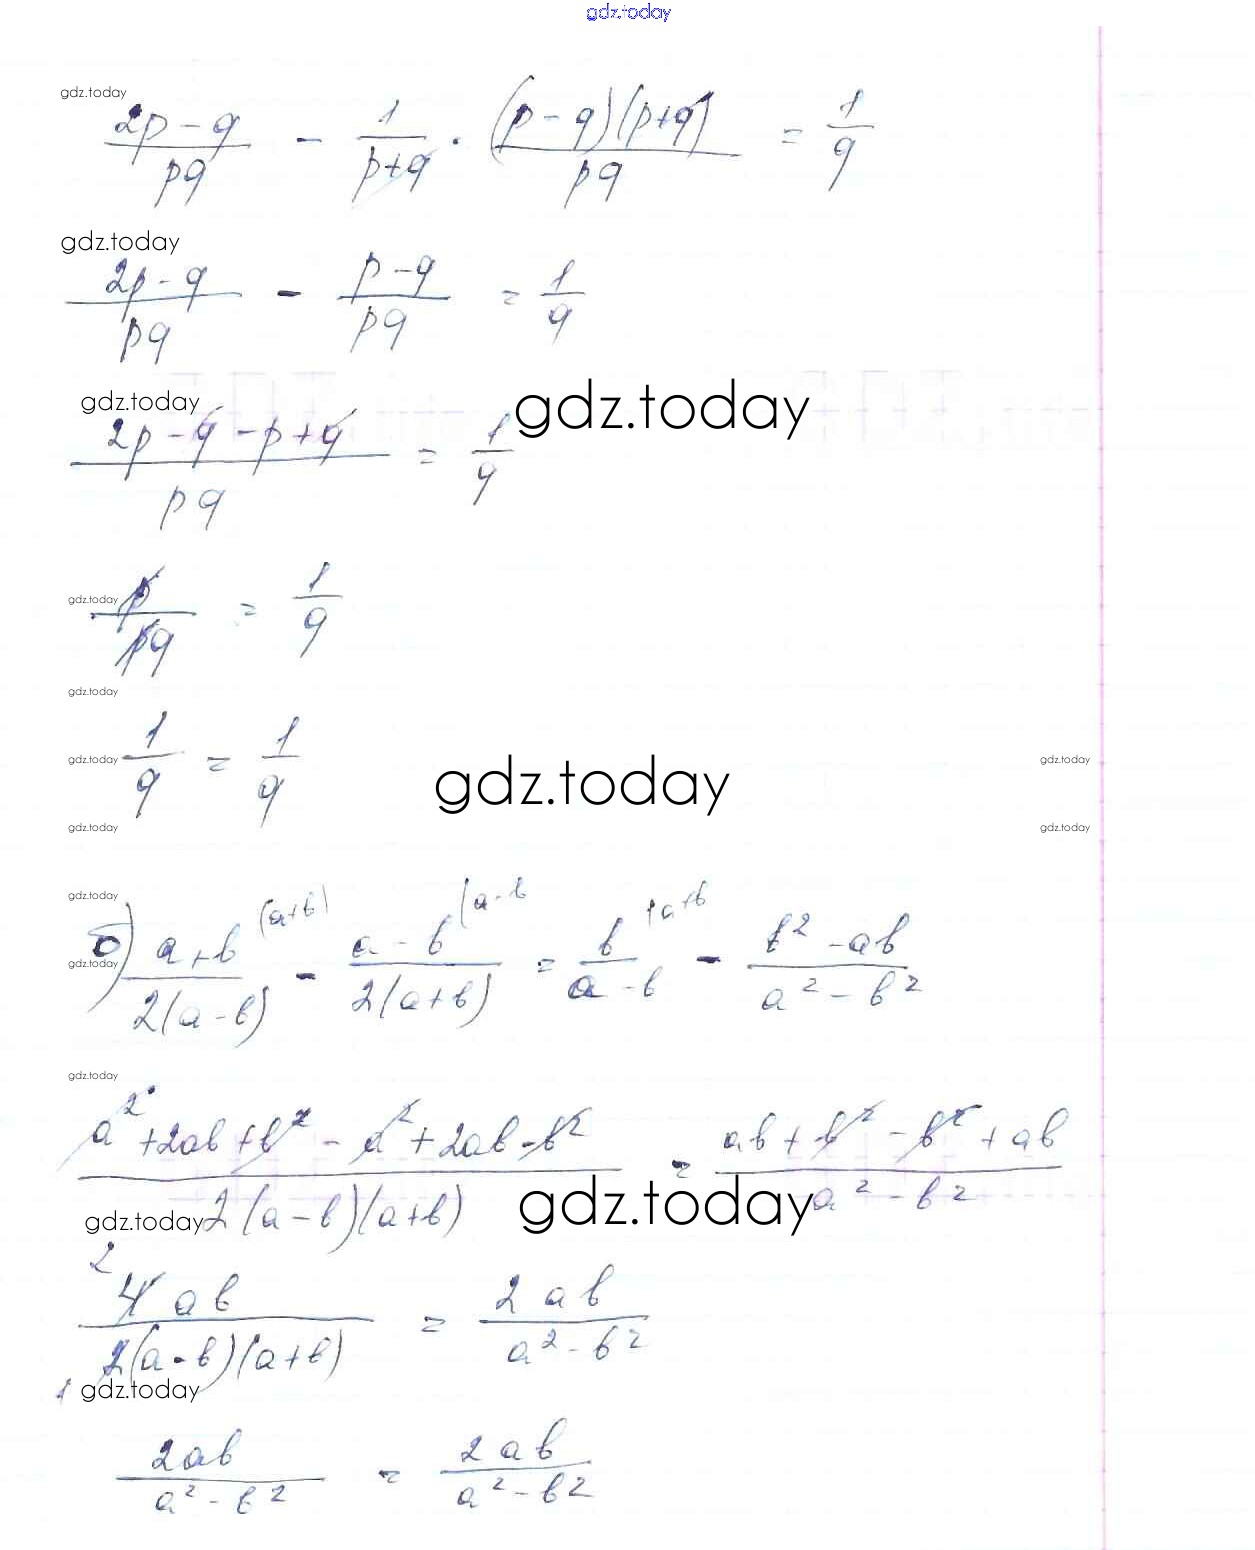 gdz.today
gdz.today
(2p - q)/(pq) - 1/(p+q) · ((p - q)(p+q))/(pq) = 1/q
gdz.today
(2p - q)/(pq) - (p - q)/(pq) = 1/q
gdz.today gdz.today
(2p - q - p + q)/(pq) = 1/q
gdz.today
p/(pq) = 1/q
gdz.today
1/q = 1/q
gdz.today gdz.today gdz.today
gdz.today gdz.today
gdz.today
б) (a+b)/(2(a-b)) (a+b) - (a-b)/(2(a+b)) (a-b = b/(a-b) (a+b - (b² - ab)/(a² - b²)
gdz.today
gdz.today
(a² + 2ab + b² - a² + 2ab - b²)/(2(a-b)(a+b)) = (ab + b² - b² + ab)/(a² - b²)
gdz.today gdz.today
2 4ab/(2(a-b)(a+b)) 1 = 2ab/(a² - b²)
gdz.today
2ab/(a² - b²) = 2ab/(a² - b²)